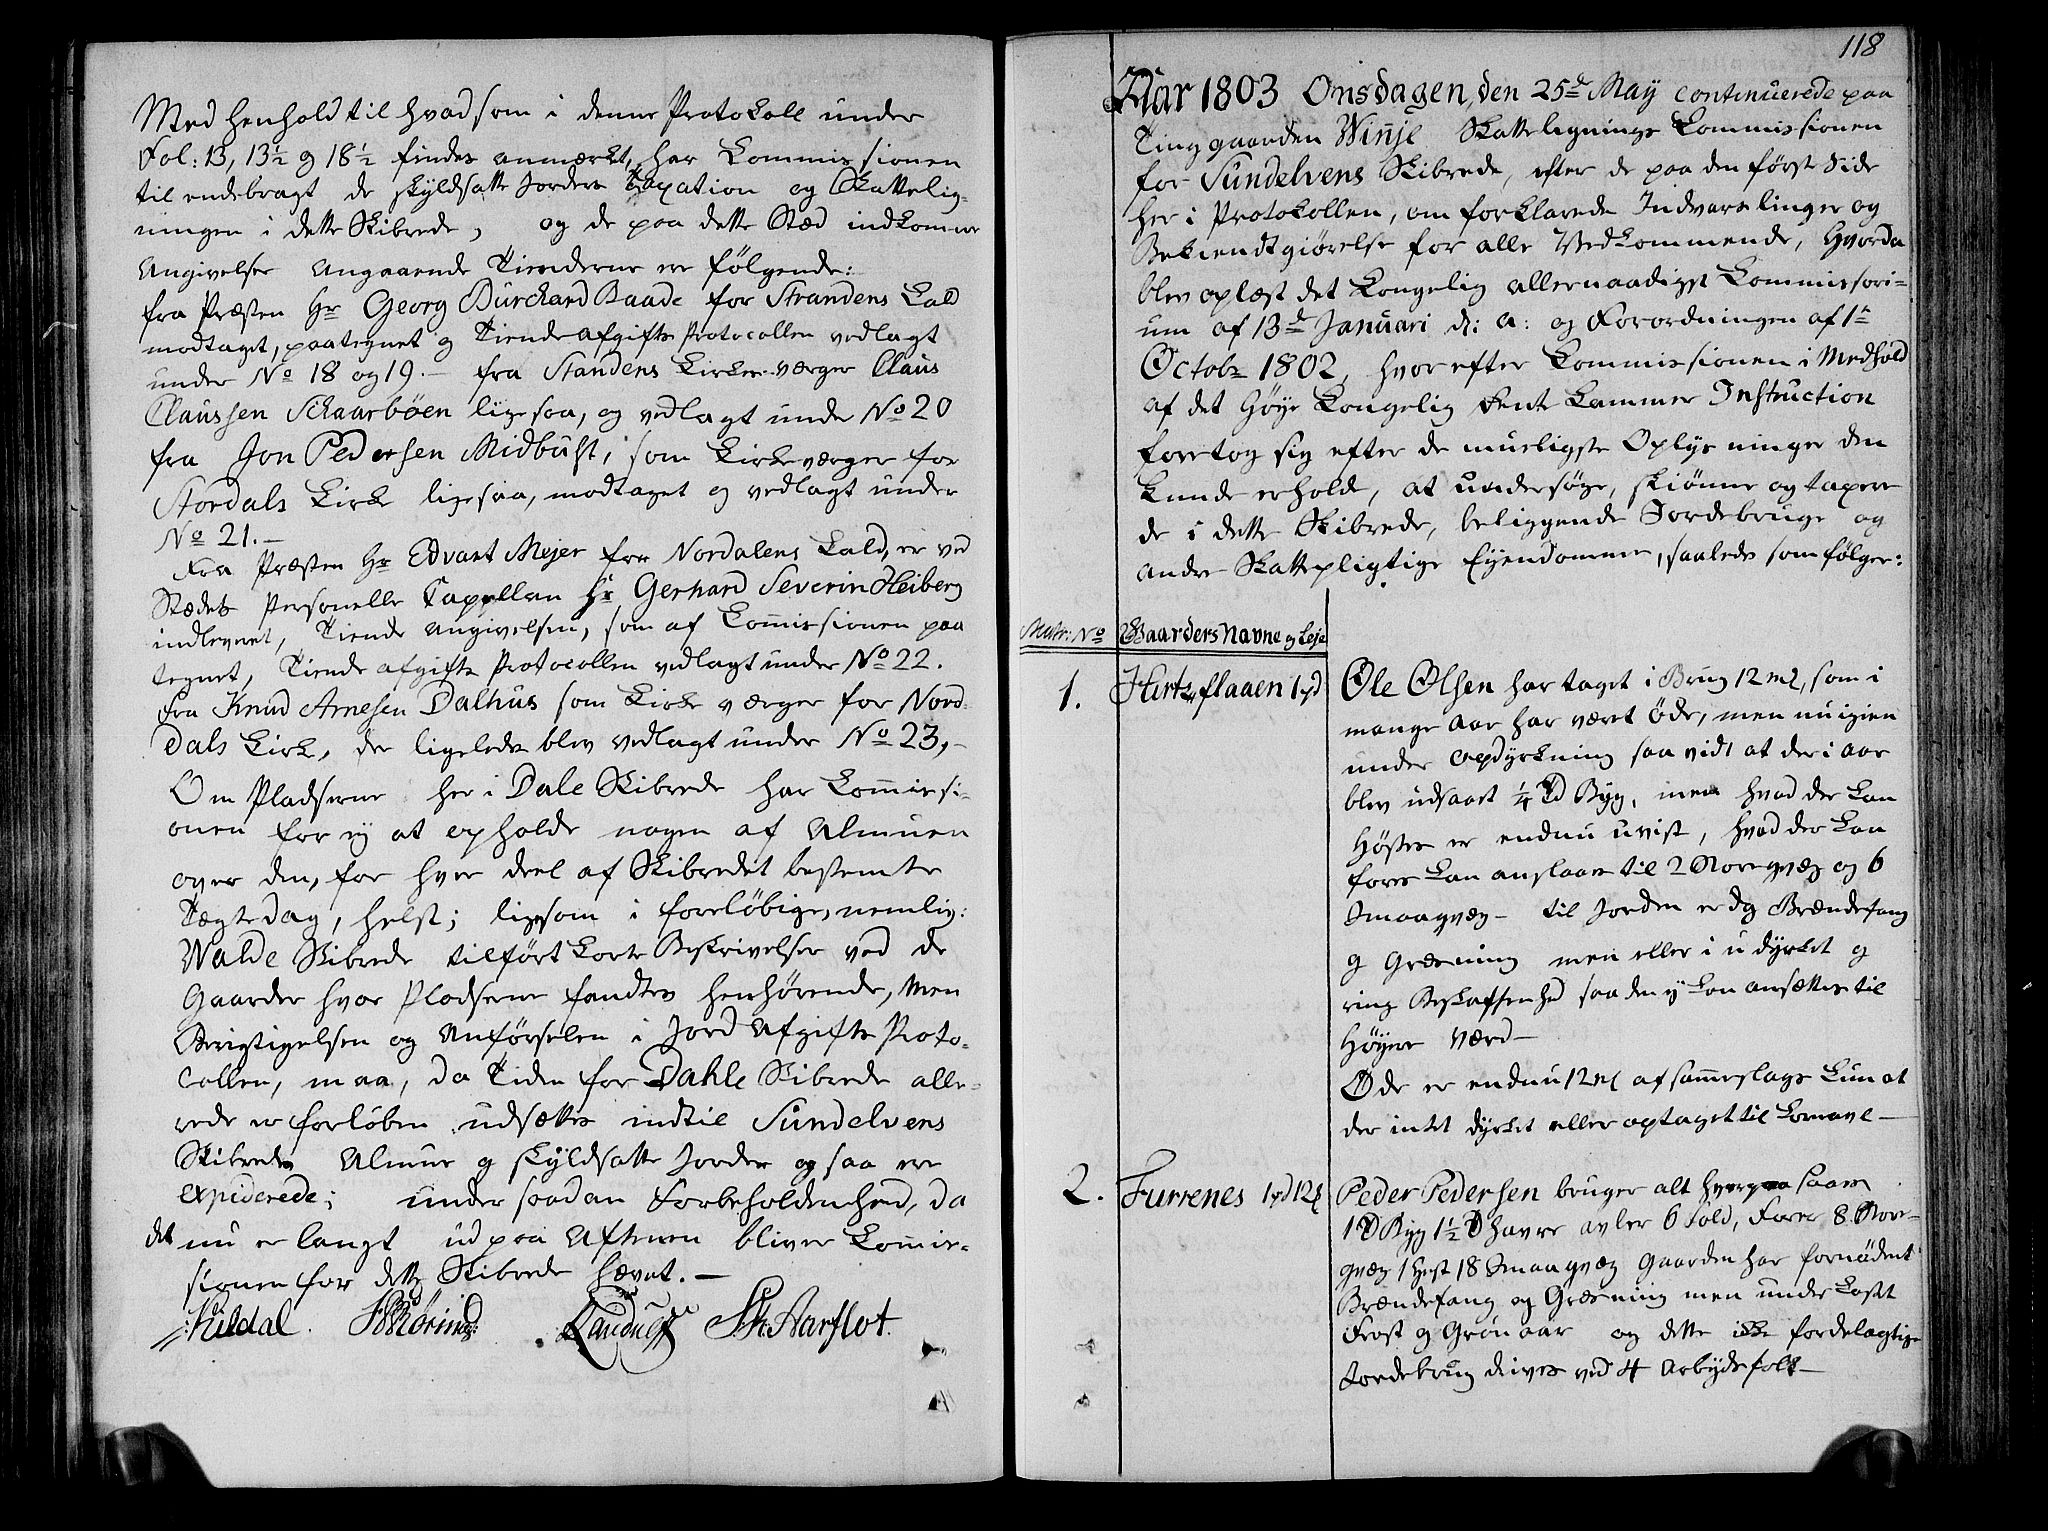 Med henhold til hvad som i denne Protokoll under
Fol: 13, 13½ og 18½ findes anmærkt, har Commissionen
til endebragt de skyldsatte Jorders Taxation og Skattelig-
ningen i dette Skibrede, og de paa dette Stæd indkomne
Angivelser angaaende Tienderne ere følgende:
fra Præsten Hr Georg Burchard Baade for Strandens Kald
modtaget, paategnet og Tiendeafgifts Protocollen vedlagt
under No 18 og 19. — fra Standens Kirkeværger Claus
Claussen Schaarbøen ligesaa, og vedlagt under No 20
fra Jon Pedersen Midbust, som Kirkeværger for
Stordals Kirke ligesaa, modtaget og vedlagt under
No 21. —
Fra Præsten Hr Edvart Mejer for Nordalens Kald, er ved
Stædets Personelle Capellan Hr Gerhard Severin Heiberg
indleveret, Tiende Angivelsen, som af Commissionen paa
tegnet, Tiende afgifts Protocollen vedlagt under No 22.
Fra Knud Arnesen Dalhus som Kirke værger for Nord-
Dals Kirke, der ligeledes blev vedlagt under No 23, —
Om Pladserne her i Dale Skibrede har Commissi-
onen for ey at opholde nogen af Almuen
over den, for hver deel af Skibredet bestemte
Tægtedag, helst; ligesom i foreløbige, nemlig:
Walde Skibrede tilført korte Beskrivelser ved de
Gaarder hvor Pladserne fandtes henhørende, Men
Berigtigelsen og Anførselen i Jord Afgifts Proto-
collen, maa, da Tiden for Dahle Skibrede alle-
rede er forløben udsættes indtil Sundelvens
Skibredes Almue og skyldsatte Jorder og saa ere
expiderede; under saadan Forbeholdenhed, da
det nu er langt ud paa Aftenen bliver Commis-
sionen for dette Skibrede hævet. —
Kildal. Landmark S. Aarflot.
118
Aar 1803 Onsdagen, den 25de May continuerede paa
Tinggaarden Winje Skattelignings Commissionen
for Sundelvens Skibrede, efter de paa den først Side
her i Protocollen, om forklarede Indvarslinger og
Bekiendtgiørelse for alle Vedkommende, hvorda
blev oplæst det Kongelig allernaadigst Commissori-
um af 13de Januari d: a: og Forordningen af 1te
Octobr 1802, hvorefter Commissionen i Medhold
af det Høye Kongelig Rente Kammer Instruction
foretog sig efter de mueligste Oplysninger den
kunde erholde, at undersøge, skiønne og taxere
de i dette Skibrede, beliggende Jordebruge og
andre Skattepligtige Eyendomme, saaledes som følger:
Matr: No Gaarders Navne og Leje
1. Hurtzflaaen 1 pd Ole Olsen har taget i Brug 12 ml, som i
mange Aar har været øde, men nu igien
under opdyrkning saa vidt at der i aar
blev udsaaet ¼ Td Byg, men hvad der kan
Høstes er endnu uvist, hvad der kan
fores kan anslaaes til 2 Storeqvæg og 6
Smaaqvæg — til Jorden er og Brændefang
og Græsning men eller i u dyrket og
ring Beskaffenhed saa den ey kan ansættes til
Høyere Værd —
Øde er endnu 12 ml af sammeslags kun at
der intet dyrket eller optaget til kornavl —
2. Furrenes 1 pd 12 ml Peder Pedersen bruger alt hvorpaa saaes
1 Td Byg 1½ Td havre avler 6 fold, Forer 8 Stor-
qvæg 1 Hest 18 Smaaqvæg Gaarden har fornødent
Brændefang og Græsning men under kastet
Frost og Grønaar og dette ikke fordelagtige
Jordebrug drives ved 4 Arbydsfolk —